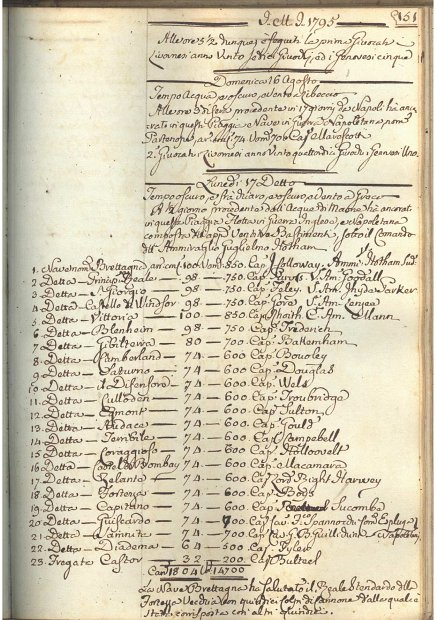 D. Etto D. 1795
151
Allevore 5½ dunque, e seguita la prima Giuocata
Livornesi anno Vinto sedici Giuochj, ed i Genovesi cinque
Domenica 16 Agosto
Tempo Acqua, e oscuro, a vento a Libeccio
Allevore di sera procedente in 17 giorni da Napoli ha anco
rato in questa Piaggia e Nave in guerra Napoletana nom.
Partenope, ar. cannoni 74 Vom. 700 Cap.
2. Giuocate Livornesi anno Vinto quattordici Giuochi i Genovesi Uno.
Lunedì 17 Detto
Tempo oscuro, e frà di aro, e scuro, a vento a Greco
A ½ giorno procedente dall'Acque di Maone ha ancorat
in questa Piaggia Flotta in Guerra Inglese, e Napoletana
composta di Capi Ventitre Bastimenti sotto il Comando
dell'Ammiraglio Guglielmo Hotham
1. Nave nom. Brettagna ar. can. 100 Vom. 850. Cap. Holloway. Amm. Hotham Sud.
2 Detta — Principe Reale — 98 — 750 Cap. V. Am. Goodall
3 Detta — S. Giorgio — 98 — 750. Cap. Foley. V. Am. Hyde Parker
4 Detta — Castello di Windsor — 98 — 750. Cap. Gore V. Am. Linzea
5 Detta — Vittoria — 100 — 850 Cap. C. Am. Mann
6 Detta — Blenheim — 98 — 750 Cap. Frederich
7 Detta — Gibilterra — 80 — 700. Cap. Backenham
8 Detta — Cumberland — 74 — 600. Cap. Rowley
9 Detta — Saturno — 74 — 600. Cap. Douglas
10 Detta — il Difensore — 74 — 600. Cap. Wels
11 Detta — Culloden — 74 — 600. Cap. Troubridge
12 Detta — Egmont — 74 — 600. Cap. Sutton
13 Detta — Audace — 74 — 600. Cap. Gould
14 Detta — Terribile — 74 — 600. Cap. Campebell
15 Detta — Coraggioso — 74 — 600. Cap. Hallowelt
16 Detta — Bombay — 74 — 600. Cap. Macamara
17 Detta — Zelante — 74 — 600. Cap. Lord Hervey
18 Detta — Fortezza — 74 — 600. Cap.
19 Detta — Capitano — 74 — 600. Cap. Sucomba
20 Detta — Guiscardo — 74 — 700 Cap.
21 Detta — Sannita — 74 — 700 Cap. Napoletan
22 Detta — Diadema — 64 — 500 Cap. Tyler
23 Fregata Castor — 32 — 200 Cap.
Can. 1804 14700
La Nave Brettagna ha salutato il Reale Stendardo della
Fortezza Vecchia con quindici colpi di cannone, dalla quale
stata corrisposta con altri quindici.